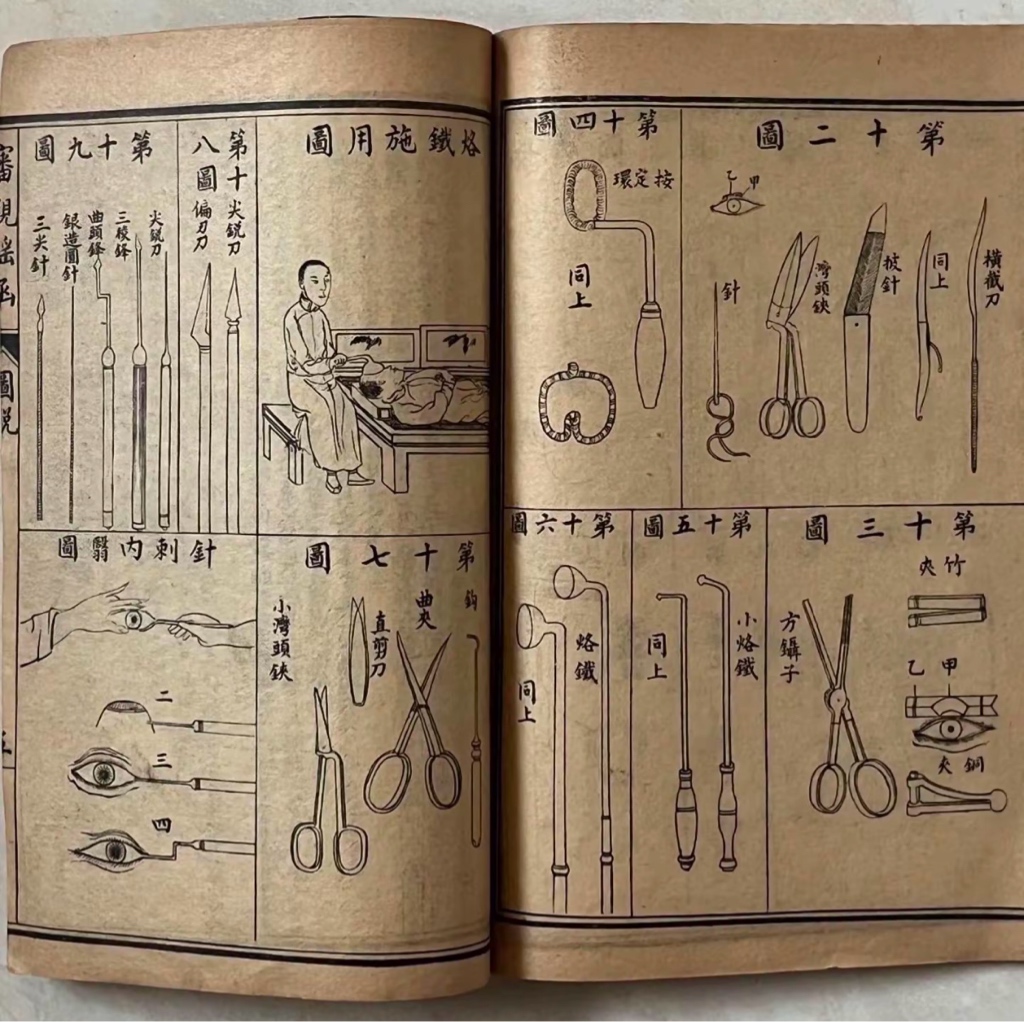 第十二圖
橫截刀
同上
披針
灣頭鋏
針
甲
乙
第十四圖
按定環
同上
第十三圖
竹夾
甲
乙
銅夾
方鑷子
第十五圖
小烙鐵
同上
第十六圖
烙鐵
同上
烙鐵施用圖
第十八圖
尖銳刀
偏刃刀
第十九圖
尖銳刀
三稜鋒
曲頭鋒
銀造圓針
三尖針
第十七圖
鈎
曲夾
直剪刀
小灣頭鋏
針刺內翳圖
二
三
四
審視瑤函
圖說